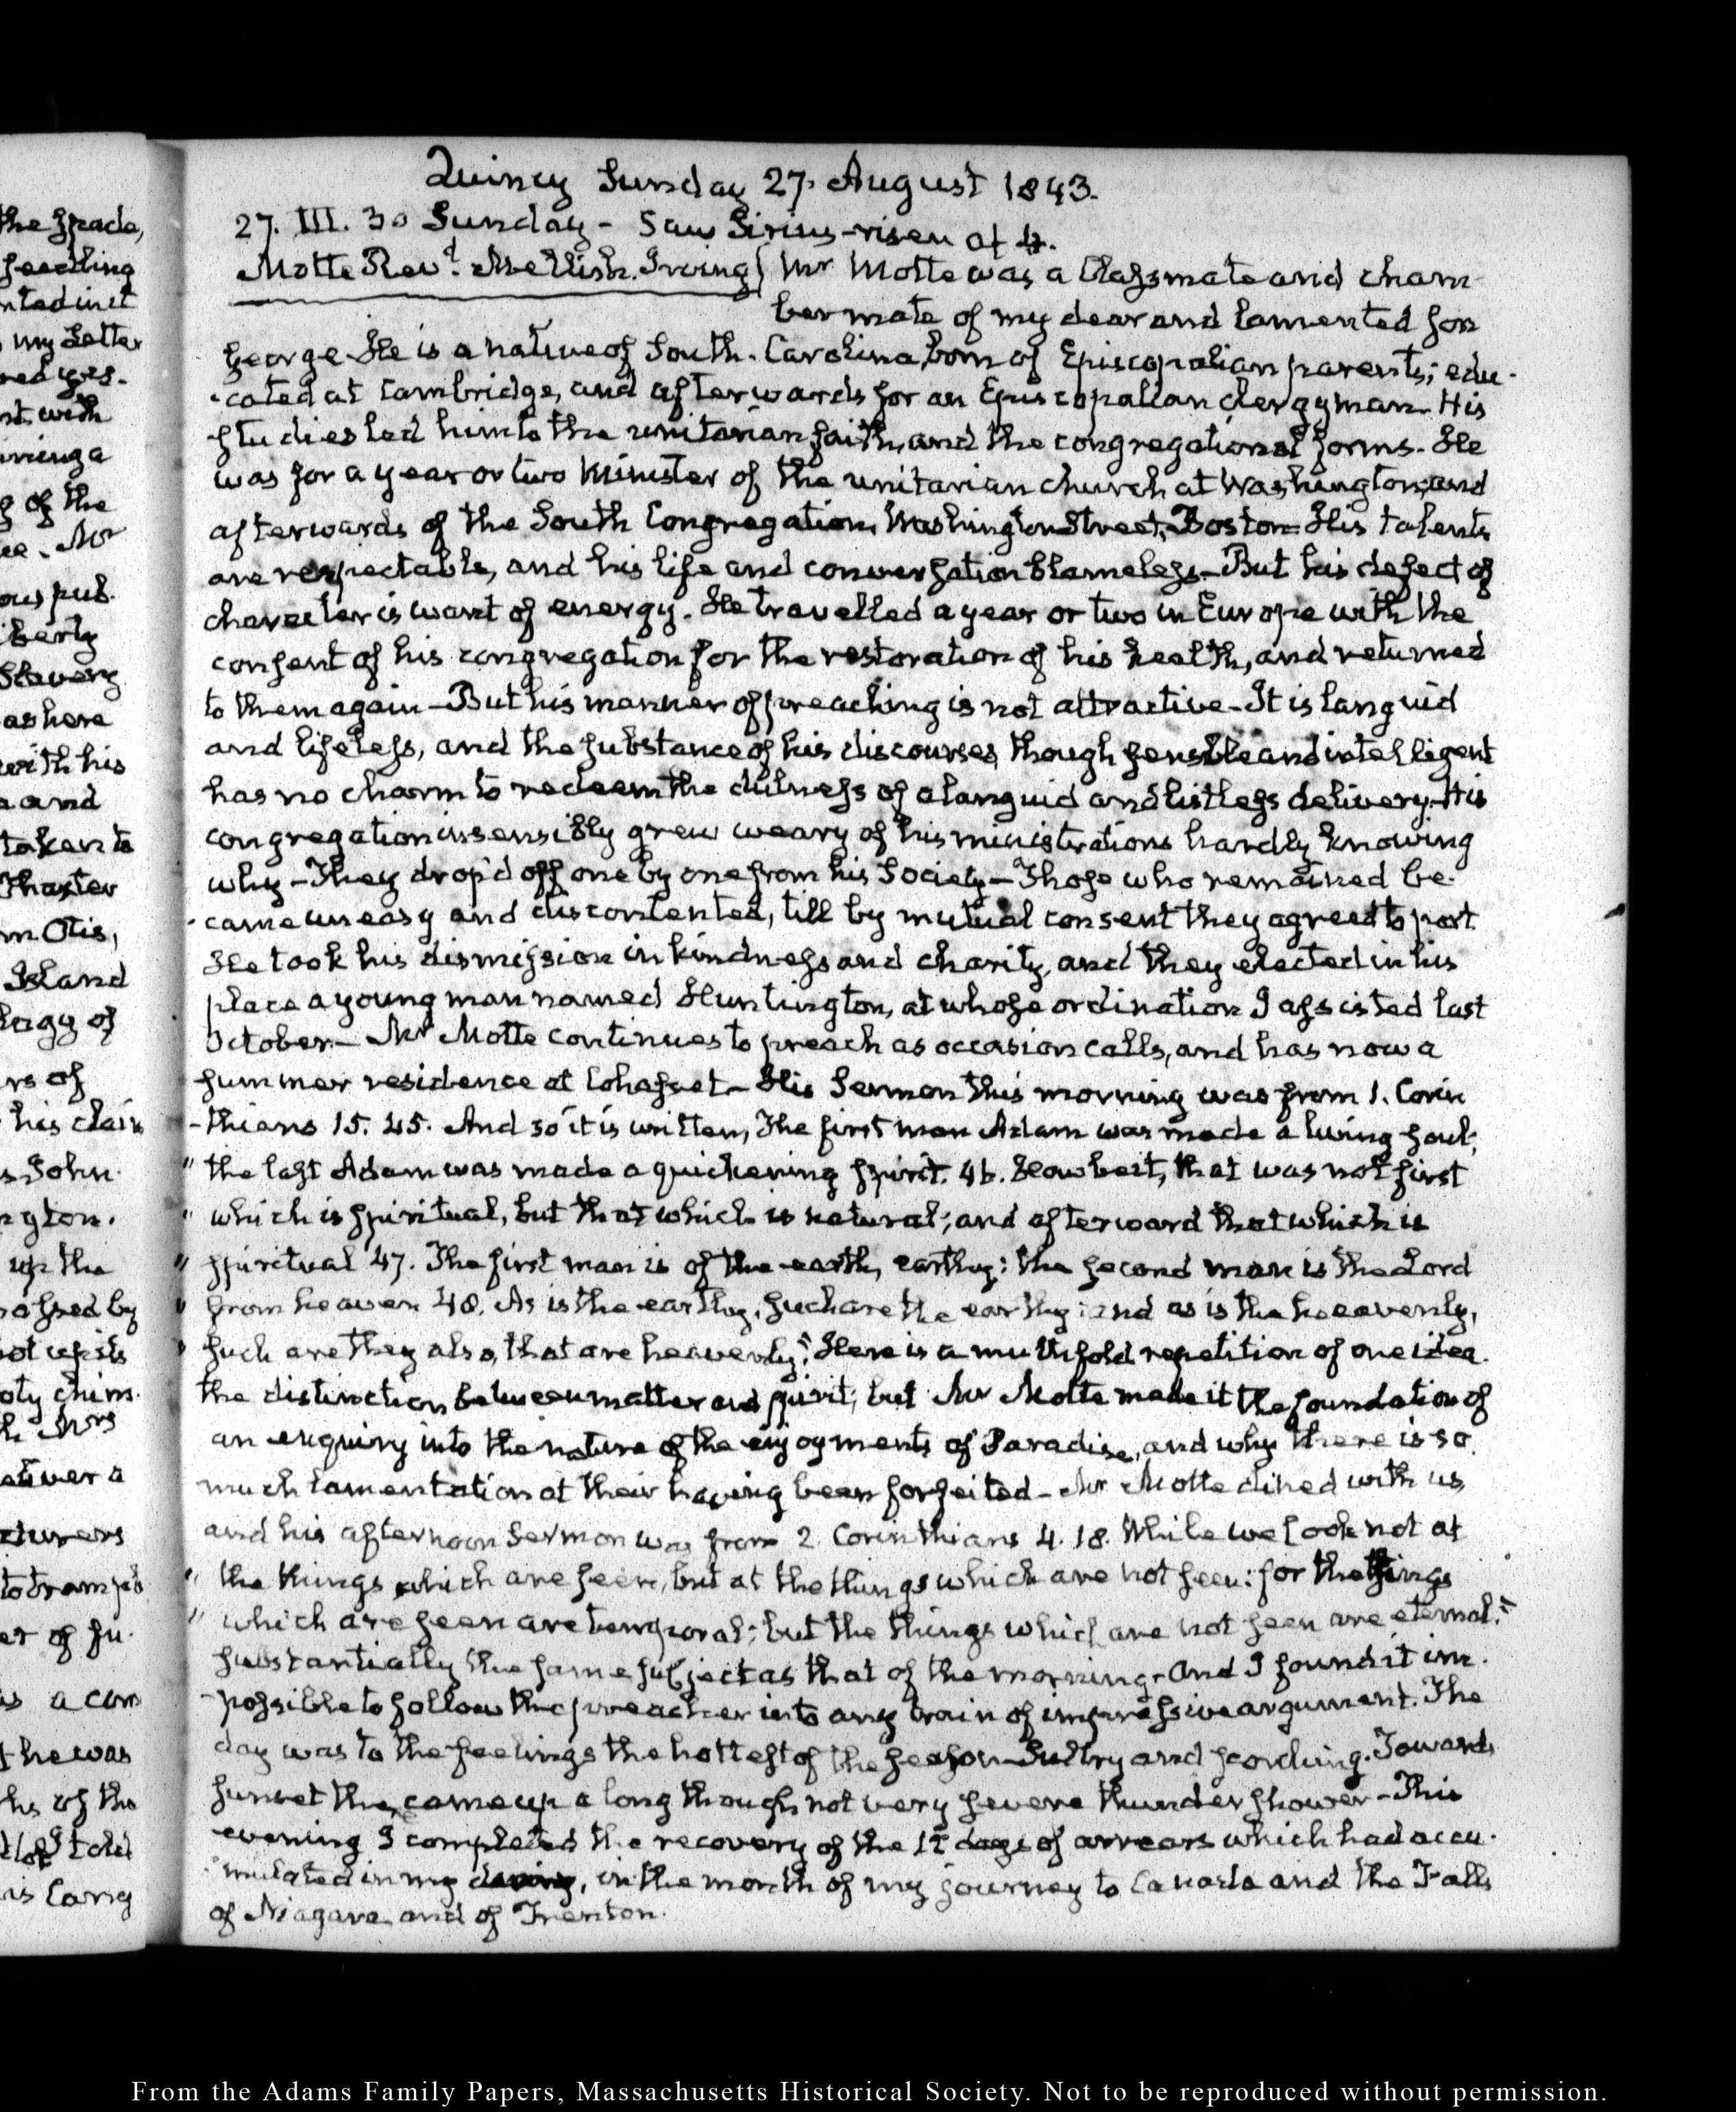 Quincy Sunday 27. August 1843.
27. III. 30 Sunday - Saw Sirius-risen at 4.
Motte Revd. Mellish. Irving} Mr Motte was a Classmate and cham-
ber mate of my dear and lamented son
George. He is a native of South-Carolina, born of Episcopalian parents; edu-
-cated at Cambridge, and afterwards for an Episcopalian clergyman. His
studies led him to the unitarian faith, and the congregational forms. He
was for a year or two Minister of the unitarian church at Washington, and
afterwards of the South Congregation, Washington Street, Boston. His talents
are respectable, and his life and conversation blameless - But his defect of
character is want of energy. He travelled a year or two in Europe with the
consent of his congregation for the restoration of his health, and returned
to them again - But his manner of preaching is not attractive - It is languid
and lifeless, and the substance of his discourses, though sensible and intelligent
has no charm to redeem the dulness of a languid and listless delivery. His
congregation insensibly grew weary of his ministrations hardly knowing
why - They drop'd off one by one from his Society - Those who remained be-
-came uneasy and discontented, till by mutual consent they agreed to part
He took his dismission in kindness and charity, and they elected in his
place a young man named Huntington, at whose ordination I assisted last
October - Mr Motte continues to preach as occasion calls, and has now a
summer residence at Cohasset - His Sermon this morning was from 1. Corin
-thians 15. 45. And so it is written, The first man Adam was made a living soul;
" the last Adam was made a quickening spirit. 46. Howbeit, that was not first
" which is spiritual, but that which is natural; and afterward that which is
" spiritual 47. The first man is of the earth, earthy: the second man is the Lord
" from heaven 48. As is the earthy, such are the earthy: and as is the heavenly,
" such are they also, that are heavenly." Here is a multifold repetition of one idea.
the distinction between matter and spirit; but Mr Motte made it the foundation of
an enquiry into the nature of the enjoyments of Paradise, and why there is so
much lamentation at their having been forfeited - Mr Motte dined with us
and his afternoon Sermon was from 2. Corinthians 4. 18. While we look not at
" the things which are seen, but at the things which are not seen: for the things
" which are seen are temporal; but the things which are not seen are eternal."
substantially the same subject as that of the morning - and I found it im-
-possible to follow the preacher into any train of impressive argument. The
day was to the feelings the hottest of the season - Sultry and scorching. Towards
sunset there came up a long though not very severe thunder shower - This
evening I completed the recovery of the 12 days of arrears which had accu-
-mulated in my diary, in the month of my journey to Canada and the Falls
of Niagara and of Trenton.
From the Adams Family Papers, Massachusetts Historical Society. Not to be reproduced without permission.